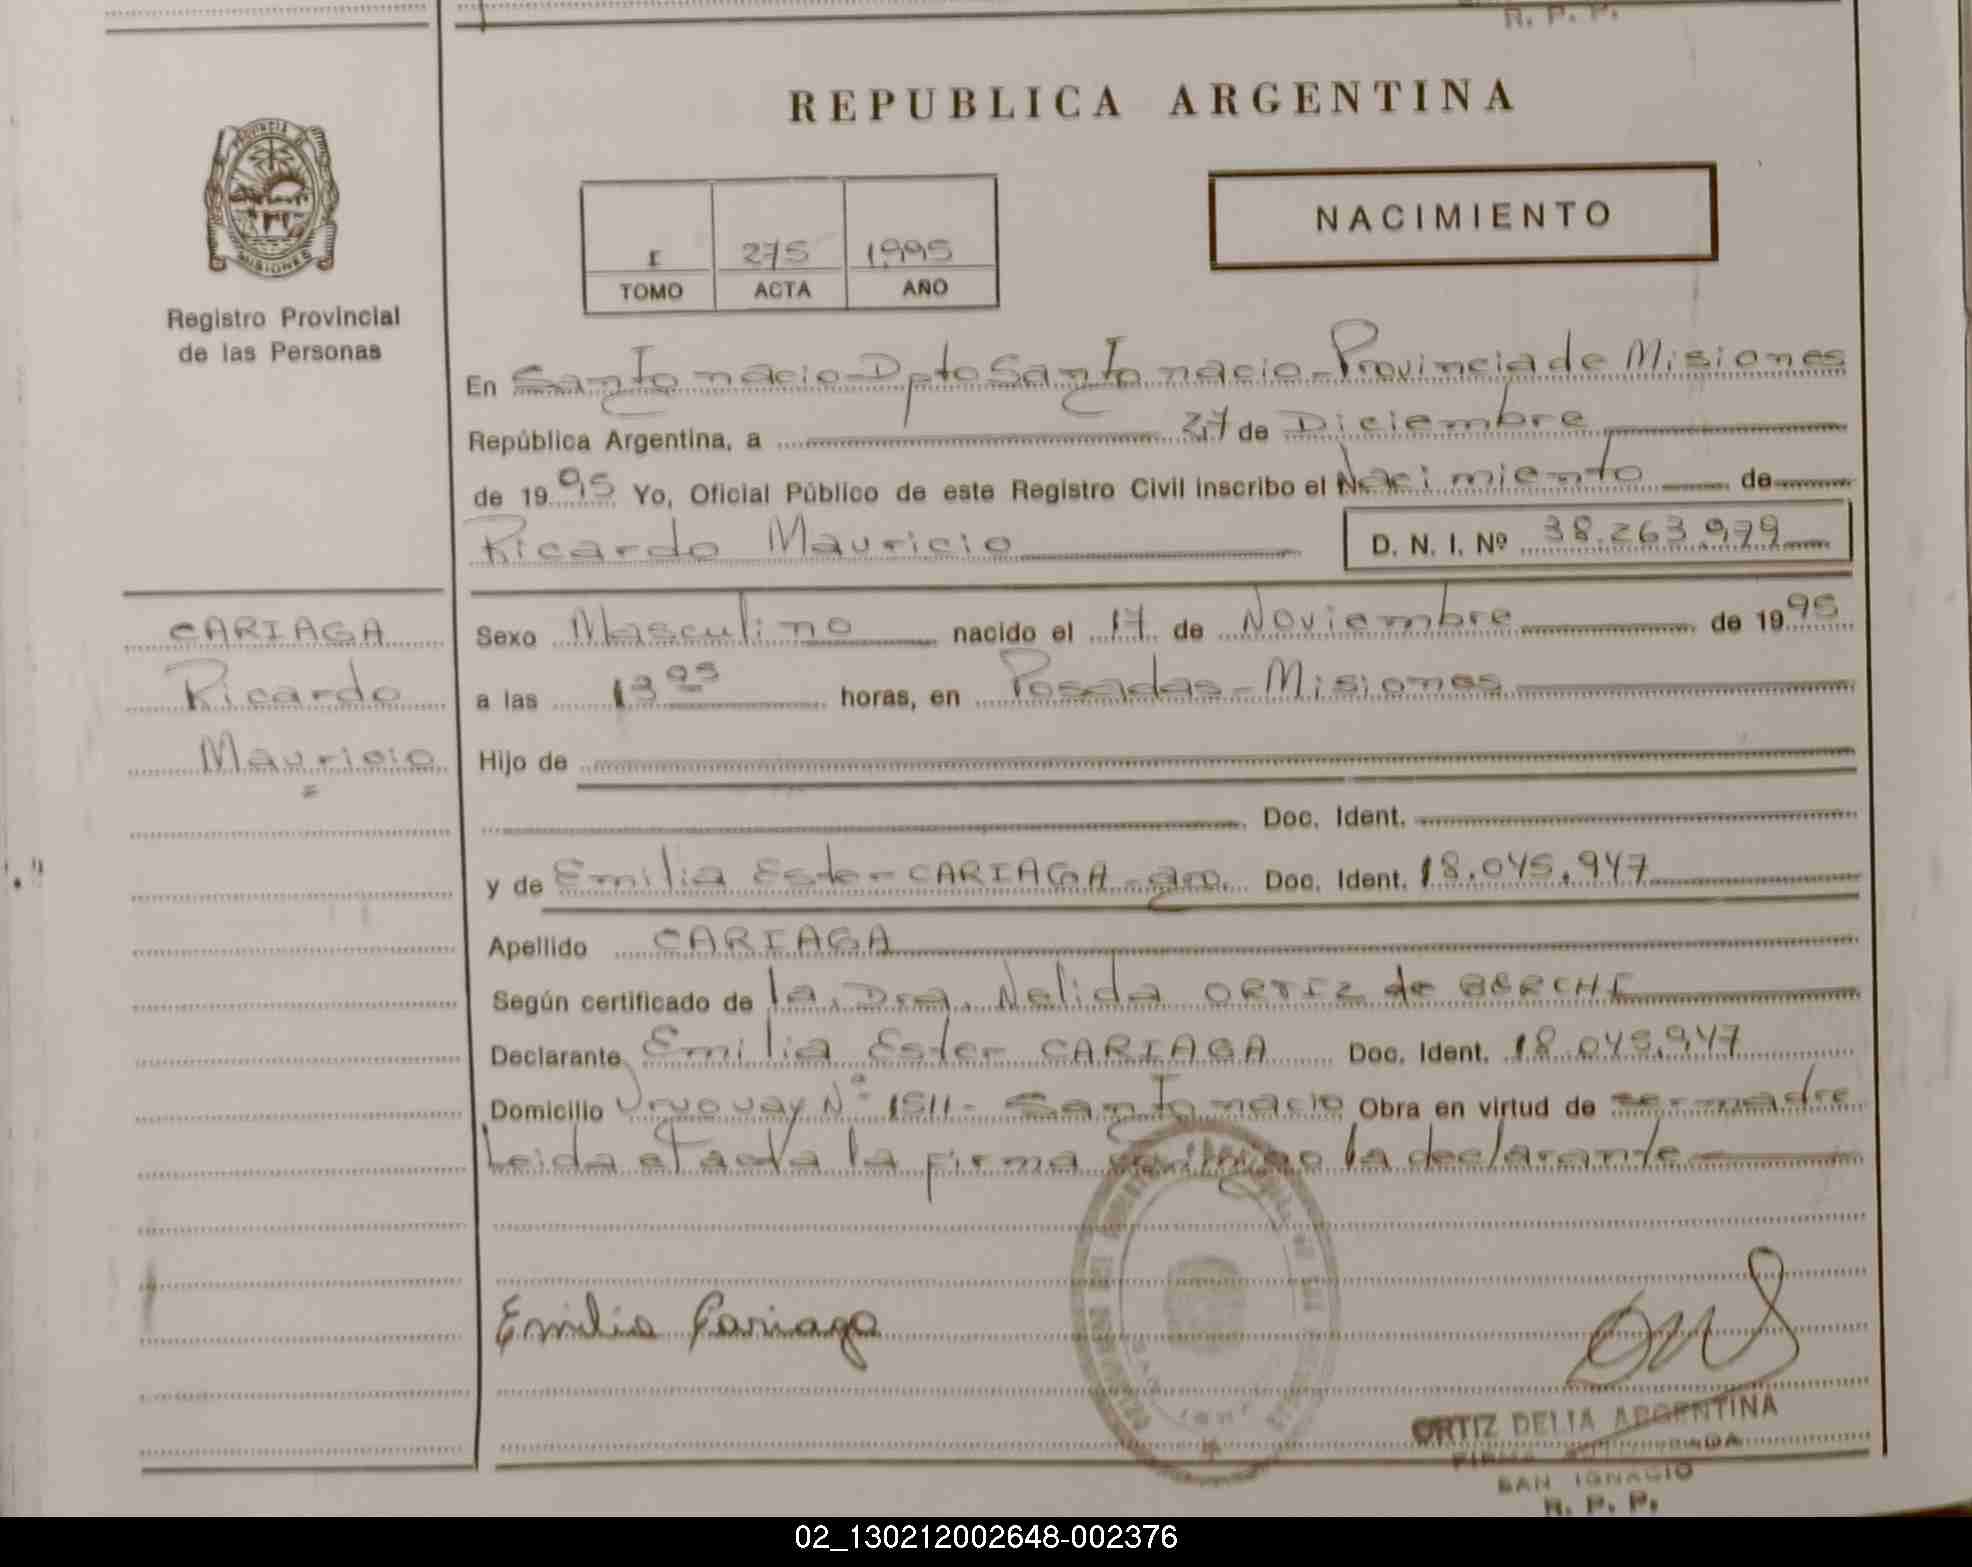 R. P. P.
REPUBLICA ARGENTINA
PROVINCIA D
MISIONES
Registro Provincial
de las Personas
I 275 1995
TOMO ACTA AÑO
NACIMIENTO
En San Ignacio - Dpto San Ignacio - Provincia de Misiones
República Argentina, a 27 de Diciembre
de 1995 Yo, Oficial Público de este Registro Civil inscribo el Nacimiento de
Ricardo Mauricio D. N. I. Nº 38.263.979
CARIAGA
Ricardo
Mauricio
Sexo Masculino nacido el 17 de Noviembre de 1995
a las horas, en Posadas - Misiones
Hijo de
Doc. Ident.
y de Emilia Ester CARIAGA - arg. Doc. Ident. 18.045.947
Apellido CARIAGA
Según certificado de la Dra. Nelida ORTIZ de
Declarante Emilia Ester CARIAGA Doc. Ident. 18.045.947
Domicilio Uruguay Nº 1511 - San Ignacio Obra en virtud de ser madre
Leida el acta la firma conmigo la declarante
Emilia Cariaga
ORTIZ DELIA ARGENTINA
FIRMA AUTORIZADA
SAN IGNACIO
R. P. P.
02_130212002648-002376